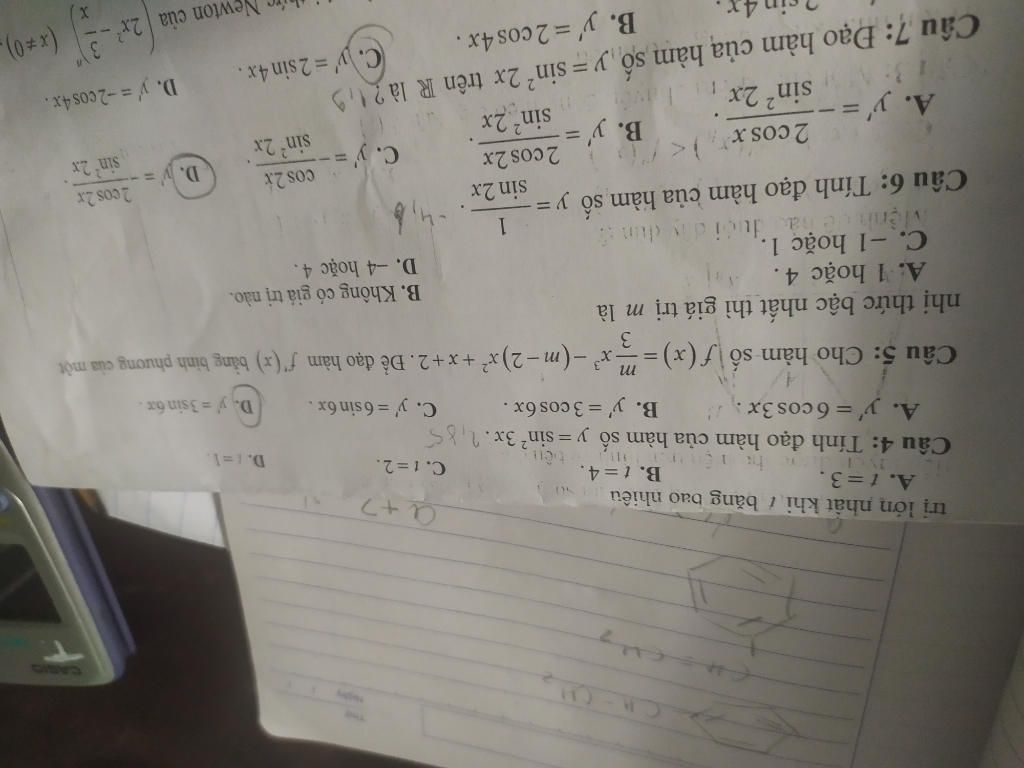 trị lớn nhất khi t bằng bao nhiêu
A. t = 3. B. t = 4. C. t = 2. D. t = 1.
Câu 4: Tính đạo hàm của hàm số y = sin² 3x.
A. y' = 6 cos 3x. B. y' = 3 cos 6x. C. y' = 6 sin 6x. D. y' = 3 sin 6x.
Câu 5: Cho hàm số f(x) = m/3 x³ − (m − 2)x² + x + 2. Để đạo hàm f'(x) bằng bình phương của một
nhị thức bậc nhất thì giá trị m là
A. 1 hoặc 4. B. Không có giá trị nào.
C. −1 hoặc 1. D. −4 hoặc 4.
Câu 6: Tính đạo hàm của hàm số y = 1/sin 2x.
A. y' = − 2 cos x/sin² 2x. B. y' = 2 cos 2x/sin² 2x. C. y' = − cos 2x/sin² 2x. D. y' = − 2 cos 2x/sin² 2x.
Câu 7: Đạo hàm của hàm số y = sin² 2x trên ℝ là ?
2 sin 4x. B. y' = 2 cos 4x. C. y' = 2 sin 4x. D. y' = −2 cos 4x.
Newton của (2x² − 3/x)ⁿ (x ≠ 0).
a + 2
CH = CH₂
CH - CH₂
CASIO